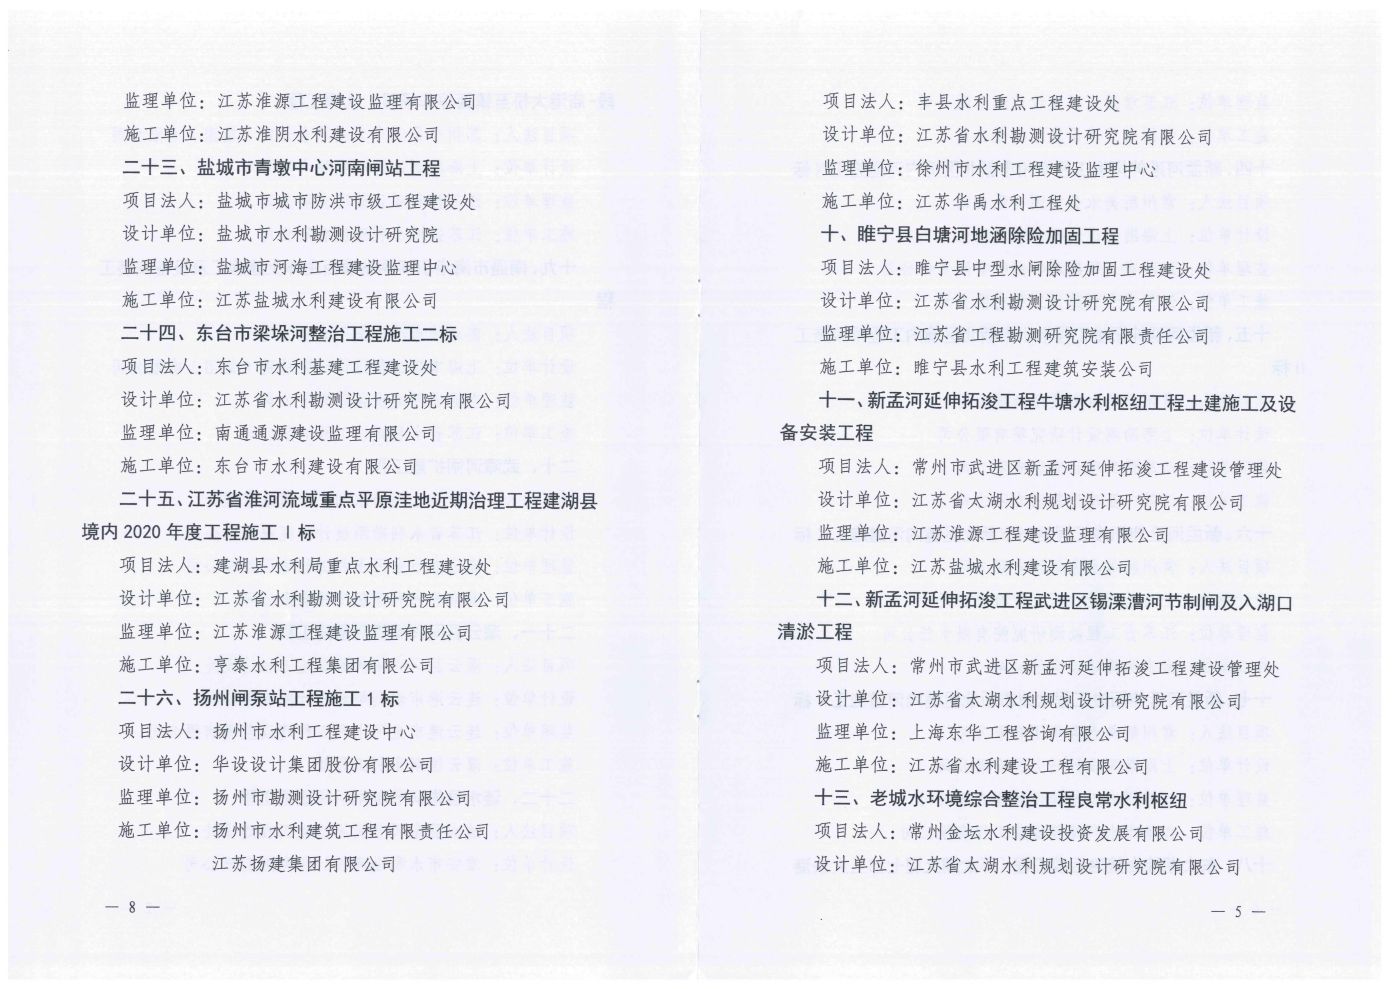 监理单位：江苏淮源工程建设监理有限公司
施工单位：江苏淮阴水利建设有限公司
二十三、盐城市青墩中心河南闸站工程
项目法人：盐城市城市防洪市级工程建设处
设计单位：盐城市水利勘测设计研究院
监理单位：盐城市河海工程建设监理中心
施工单位：江苏盐城水利建设有限公司
二十四、东台市梁垛河整治工程施工二标
项目法人：东台市水利基建工程建设处
设计单位：江苏省水利勘测设计研究院有限公司
监理单位：南通通源建设监理有限公司
施工单位：东台市水利建设有限公司
二十五、江苏省淮河流域重点平原洼地近期治理工程建湖县
境内 2020 年度工程施工Ⅰ标
项目法人：建湖县水利局重点水利工程建设处
设计单位：江苏省水利勘测设计研究院有限公司
监理单位：江苏淮源工程建设监理有限公司
施工单位：亨泰水利工程集团有限公司
二十六、扬州闸泵站工程施工Ⅰ标
项目法人：扬州市水利工程建设中心
设计单位：华设设计集团股份有限公司
监理单位：扬州市勘测设计研究院有限公司
施工单位：扬州市水利建筑工程有限责任公司
江苏扬建集团有限公司
— 8 —
项目法人：丰县水利重点工程建设处
设计单位：江苏省水利勘测设计研究院有限公司
监理单位：徐州市水利工程建设监理中心
施工单位：江苏华禹水利工程处
十、睢宁县白塘河地涵除险加固工程
项目法人：睢宁县中型水闸除险加固工程建设处
设计单位：江苏省水利勘测设计研究院有限公司
监理单位：江苏省工程勘测研究院有限责任公司
施工单位：睢宁县水利工程建筑安装公司
十一、新孟河延伸拓浚工程牛塘水利枢纽工程土建施工及设
备安装工程
项目法人：常州市武进区新孟河延伸拓浚工程建设管理处
设计单位：江苏省太湖水利规划设计研究院有限公司
监理单位：江苏淮源工程建设监理有限公司
施工单位：江苏盐城水利建设有限公司
十二、新孟河延伸拓浚工程武进区锡溧漕河节制闸及入湖口
清淤工程
项目法人：常州市武进区新孟河延伸拓浚工程建设管理处
设计单位：江苏省太湖水利规划设计研究院有限公司
监理单位：上海东华工程咨询有限公司
施工单位：江苏省水利建设工程有限公司
十三、老城水环境综合整治工程良常水利枢纽
项目法人：常州金坛水利建设投资发展有限公司
设计单位：江苏省太湖水利规划设计研究院有限公司
— 5 —